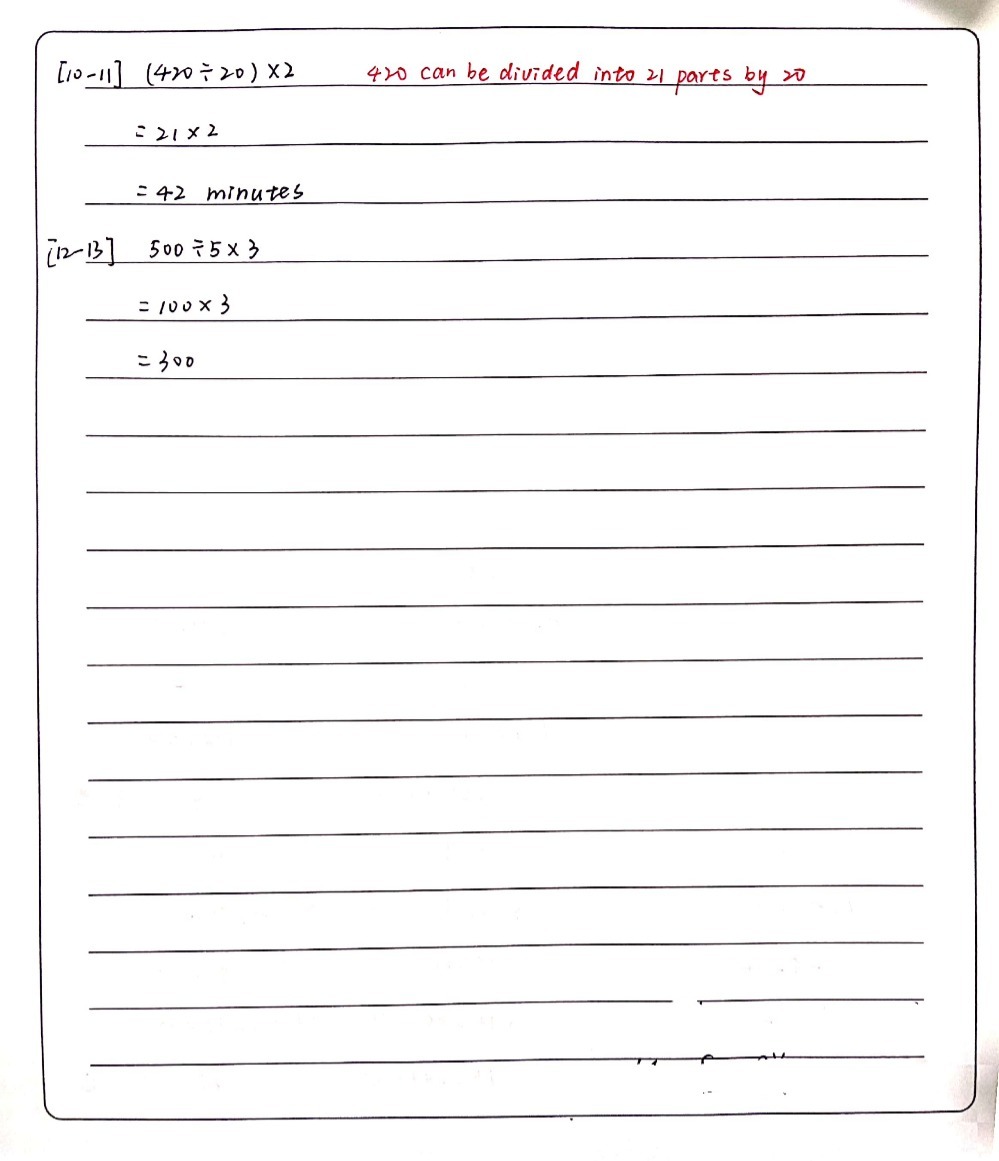 [10-11] (420÷20)×2 420 can be divided into 21 parts by 20
=21×2
=42 minutes
[12-13] 500÷5×3
=100×3
=300